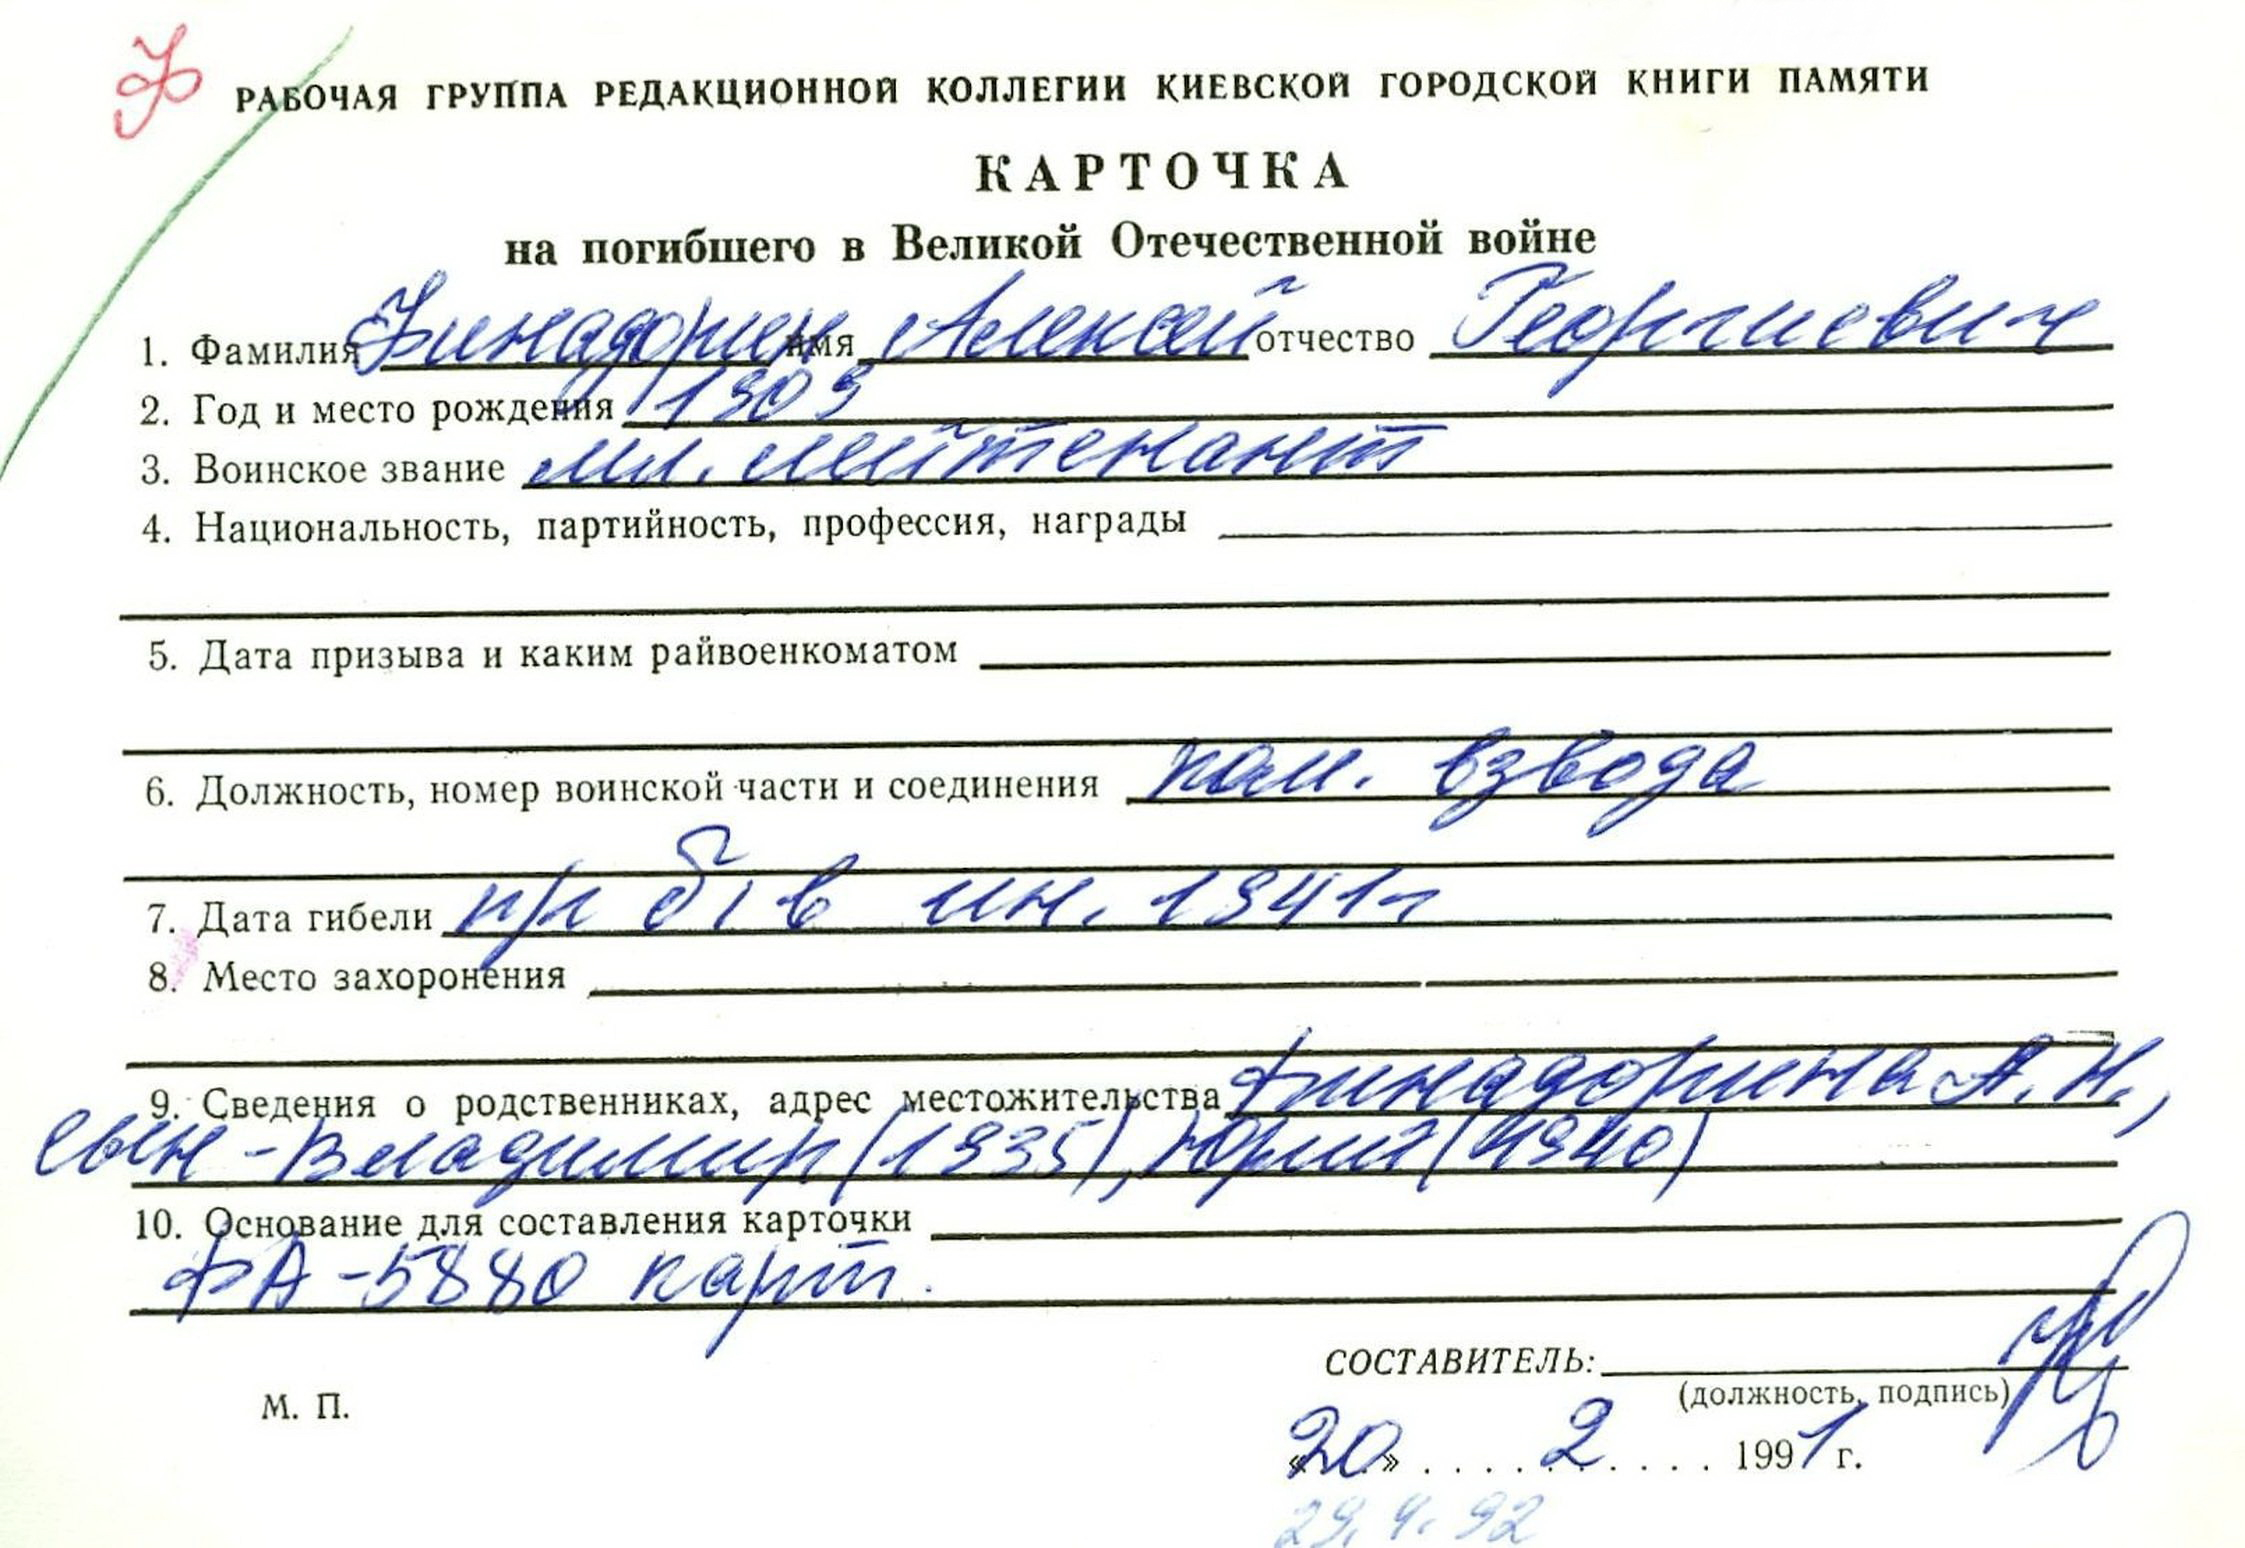 Ф
РАБОЧАЯ ГРУППА РЕДАКЦИОННОЙ КОЛЛЕГИИ КИЕВСКОЙ ГОРОДСКОЙ КНИГИ ПАМЯТИ
КАРТОЧКА
на погибшего в Великой Отечественной войне
1. Фамилия Финадорин имя Алексей отчество Георгиевич
2. Год и место рождения 1909
3. Воинское звание мл. лейтенант
4. Национальность, партийность, профессия, награды
5. Дата призыва и каким райвоенкоматом
6. Должность, номер воинской части и соединения ком. взвода
7. Дата гибели п/п б/в 1941г
8. Место захоронения
9. Сведения о родственниках, адрес местожительства Финадорина А.Н.,
сын - Владимир (1935), Юрий (1940)
10. Основание для составления карточки
ФА-5880 карт.
СОСТАВИТЕЛЬ:
(должность, подпись)
М. П.
«20» . . . . 2 . . . . . 1991 г.
29.4.92